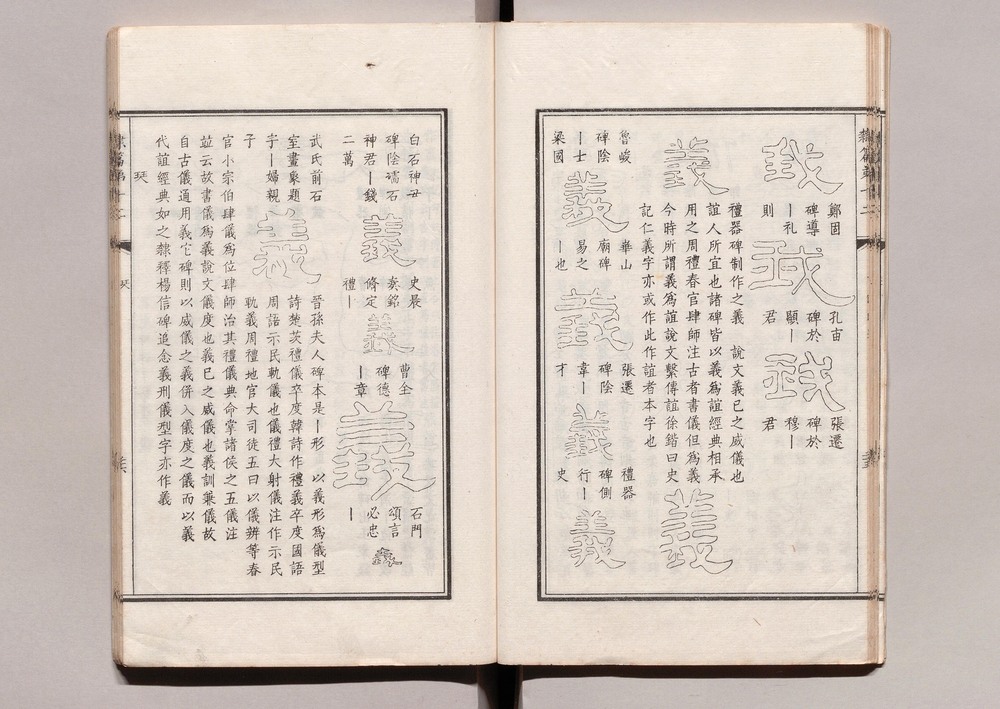 我
鄭固
碑導
｜礼
則
我
孔宙
碑於
顯｜
君
我
張遷
碑於
穆｜
君
義
禮器碑制作之義　說文義已之威儀也
誼人所宜也諸碑皆以義爲誼經典相承
用之周禮春官肆師注古者書儀但爲義
今時所謂義爲誼說文繫傳誼徐鍇曰史
記仁義字亦或作此作誼者本字也
義
魯峻
碑陰
｜士
梁國
義
華山
廟碑
易之
｜也
義
張遷
碑陰
韋｜
才
義
禮器
碑側
行｜
史
義
白石神君
碑陰禱石
神君｜錢
二萬
義
史晨
奏銘
脩定
禮｜
義
曹全
碑德
｜章
義
石門
頌言
必忠
｜
義
武氏前石
室畫象題
字｜婦親
子
義
晉孫夫人碑本是｜形　以義形爲儀型
詩楚茨禮儀卒度韓詩作禮義卒度國語
周語示民軌儀也儀禮大射儀注作示民
軌義周禮地官大司徒五曰以儀辨等春
官小宗伯肆儀爲位肆師治其禮儀典命掌諸侯之五儀注
竝云故書儀爲義說文儀度也義已之威儀也義訓兼儀故
自古儀通用義它碑則以威儀之義併入儀度之儀而以義
代誼經典如之隸釋楊信碑追念義刑儀型字亦作義